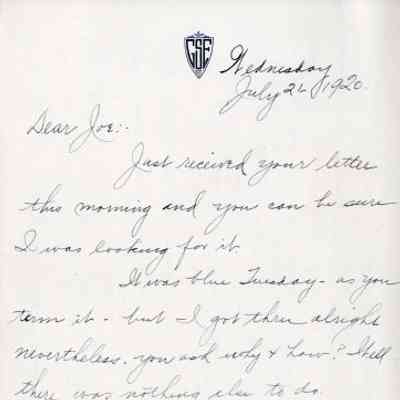 GSE
Wednesday
July 21, 1920.
Dear Joe:.
Just received your letter
this morning and you can be sure
I was looking for it
It was blue Tuesday - as you
term it - but I got thru alright
nevertheless. you ask why & how? Well
there was nothing else to do.